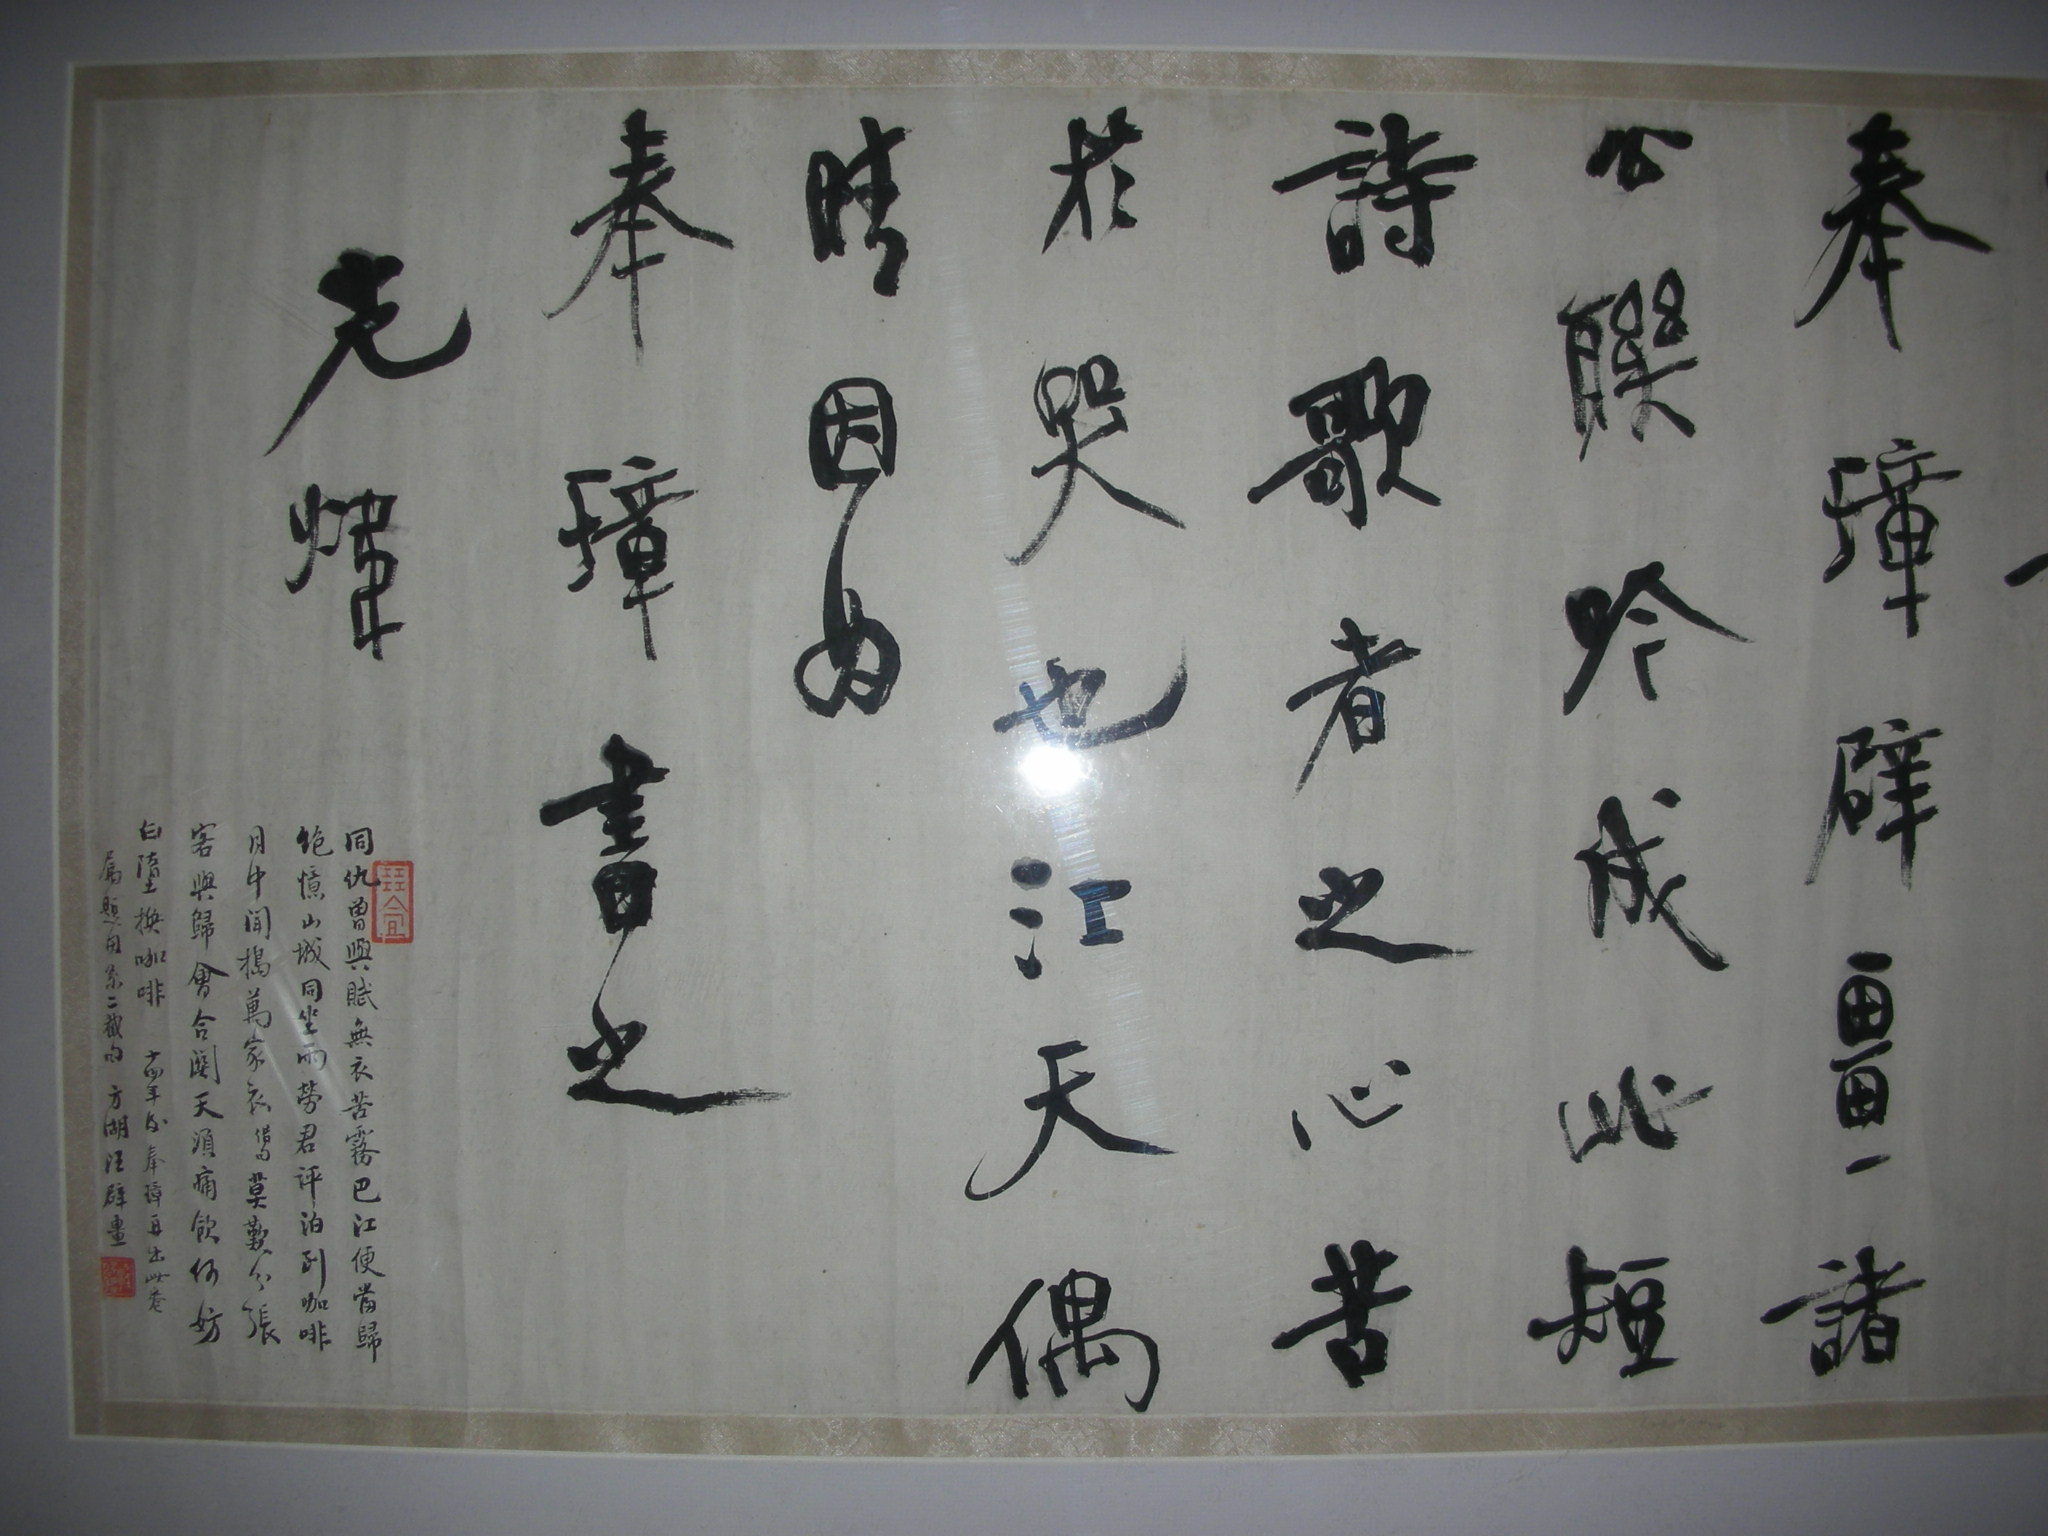 奉璋辟畺諸
公聯吟成此短
詩歌者之心苦
於哭也江天偶
晴因為
奉璋書之
光煒
同仇曾與賦無衣苦霧巴江便當歸
絶憶山城同坐雨勞君評泊到咖啡
月中聞搗萬家衣 莫歎分張
客與歸會合關天須痛飲何妨
白墮換咖啡 十四年後奉璋再出此卷
屬題用京二截句 方湖汪辟畺